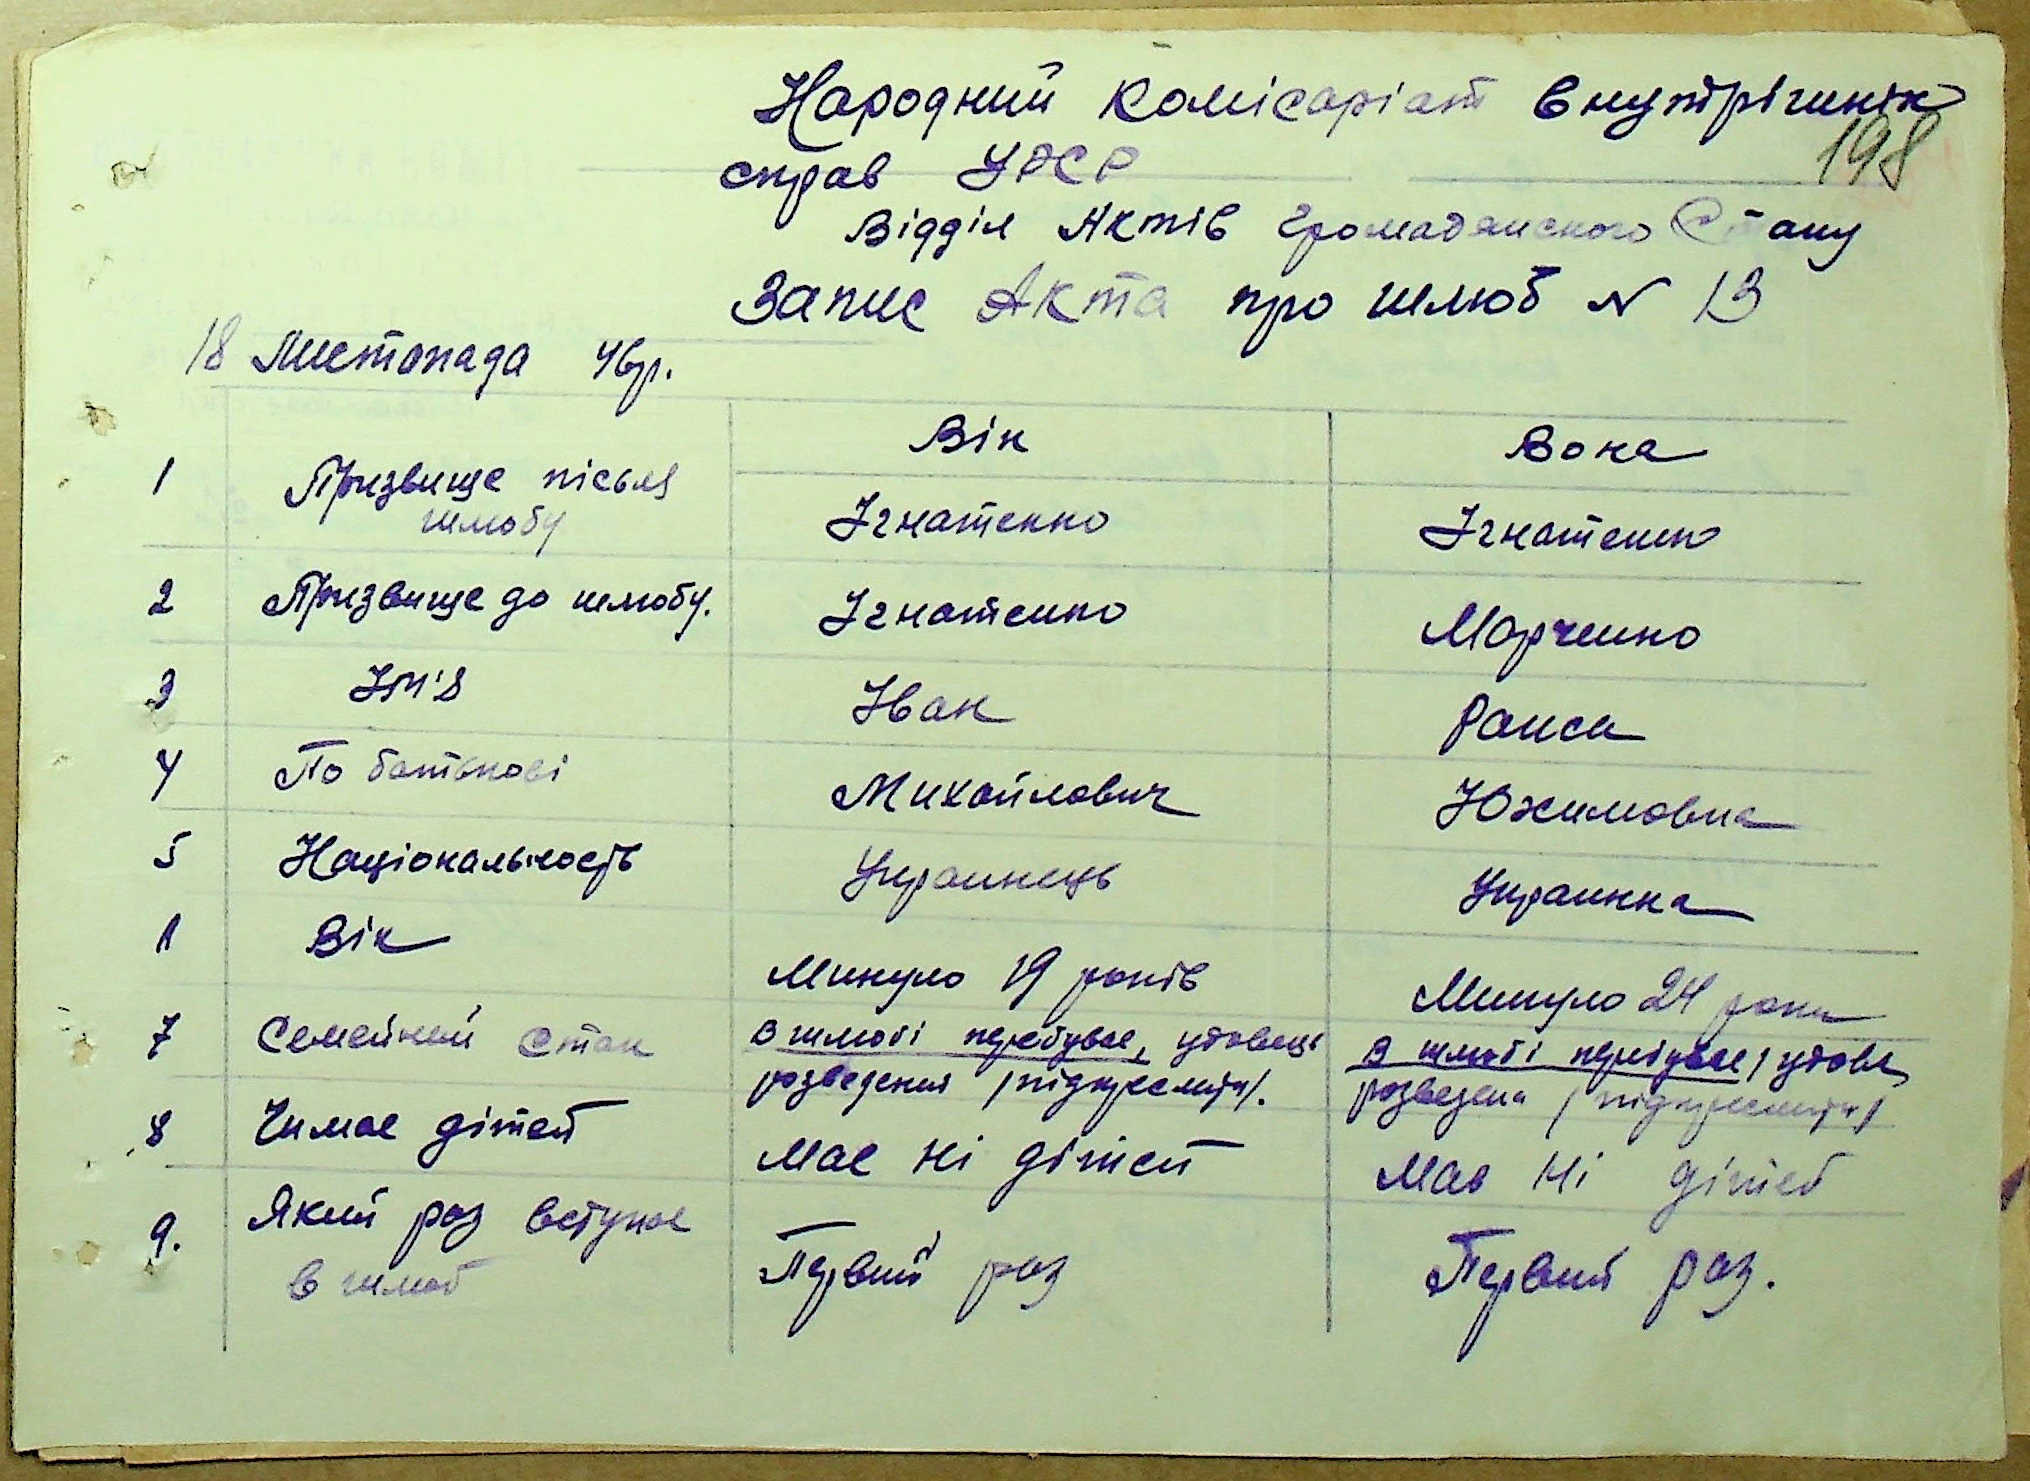 Народний Комісаріат Внутрішніх
198
справ УРСР
Відділ Актів Громадянского Стану
Запис Акта про шлюб N 13
18 Листопада 46р.
Він Вона
1 Призвище після шлюбу Ігнатенко Ігнатенко
2 Призвище до шлюбу. Ігнатенко Марченко
3 Ім'я Іван Раиса
4 По батькові Михайлович Юхимовна
5 Національность Украинець Украинка
Вік Минуло 19 років Минуло 24 роки
7 Семейний Стан В шлюбі перебувае, удовець В шлюбі перебувае, удова,
розведений /підкреслити/. розведена /підкреслити/
8 Чи мае дітей Мае Ні дітей Мае Ні дітей
9. Який раз вступае Первий раз Первий раз.
в шлюб